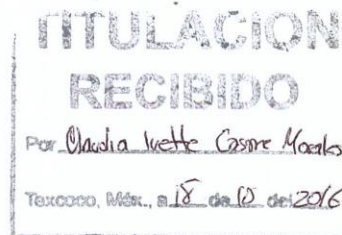 TITULACION
RECIBIDO
Por Claudia Ivette Morales
Texcoco, Méx., a 18 de 10 del 2016